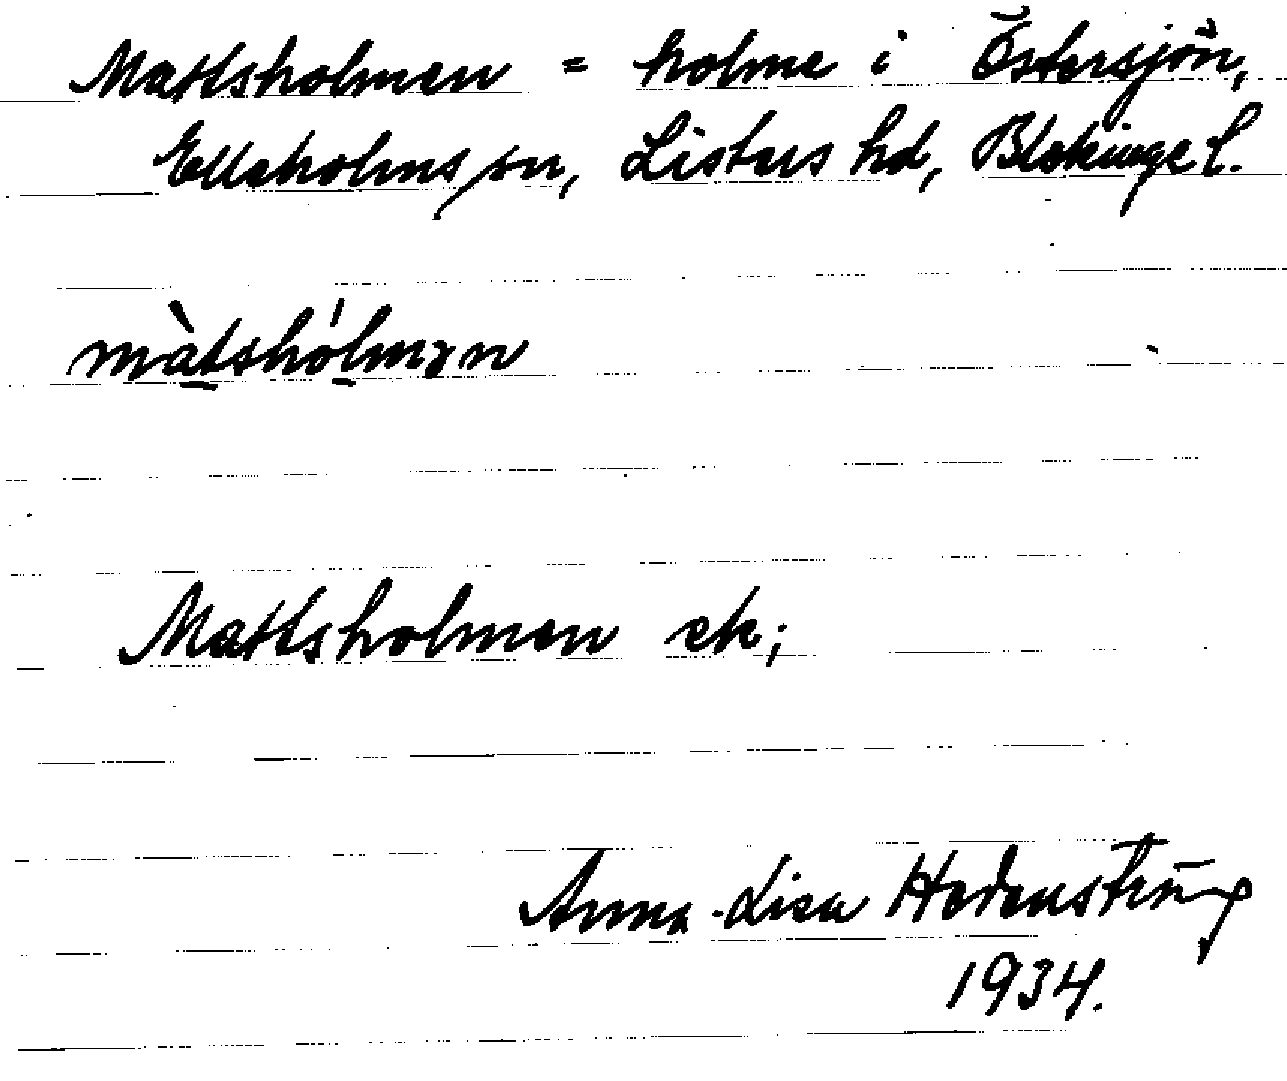 Mattsholmen = holme i Östersjön,
Elleholms sn, Listers hd, Blekinge l.
màtshólmɘn
Mattsholmen ek;
Anna-Lisa Hedenström
1934.